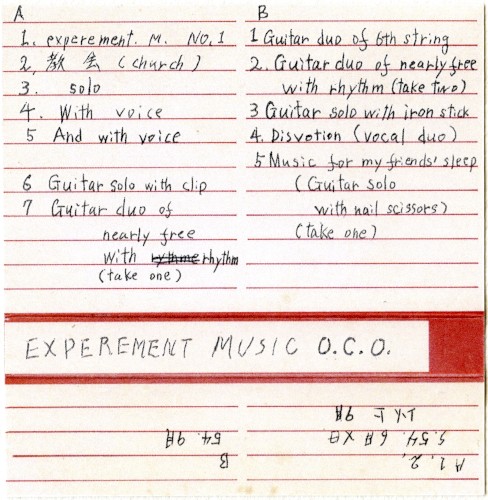 A
1. experement. M. NO.1
2, 教会 (church)
3. solo
4. With voice
5 And with voice
6 Guitar solo with clip
7 Guitar duo of
nearly free
with rhythm
(take one)
B
1 Guitar duo of 6th string
2. Guitar duo of nearly free
with rhythm (take two)
3 Guitar solo with iron stick
4. Disvotion (vocal duo)
5 Music for my friends' sleep
(Guitar solo
with nail scissors)
(take one)
EXPEREMENT MUSIC O.C.O.
A 1, 2,
S.54. 6月X日
以下 9月
B
54. 9月